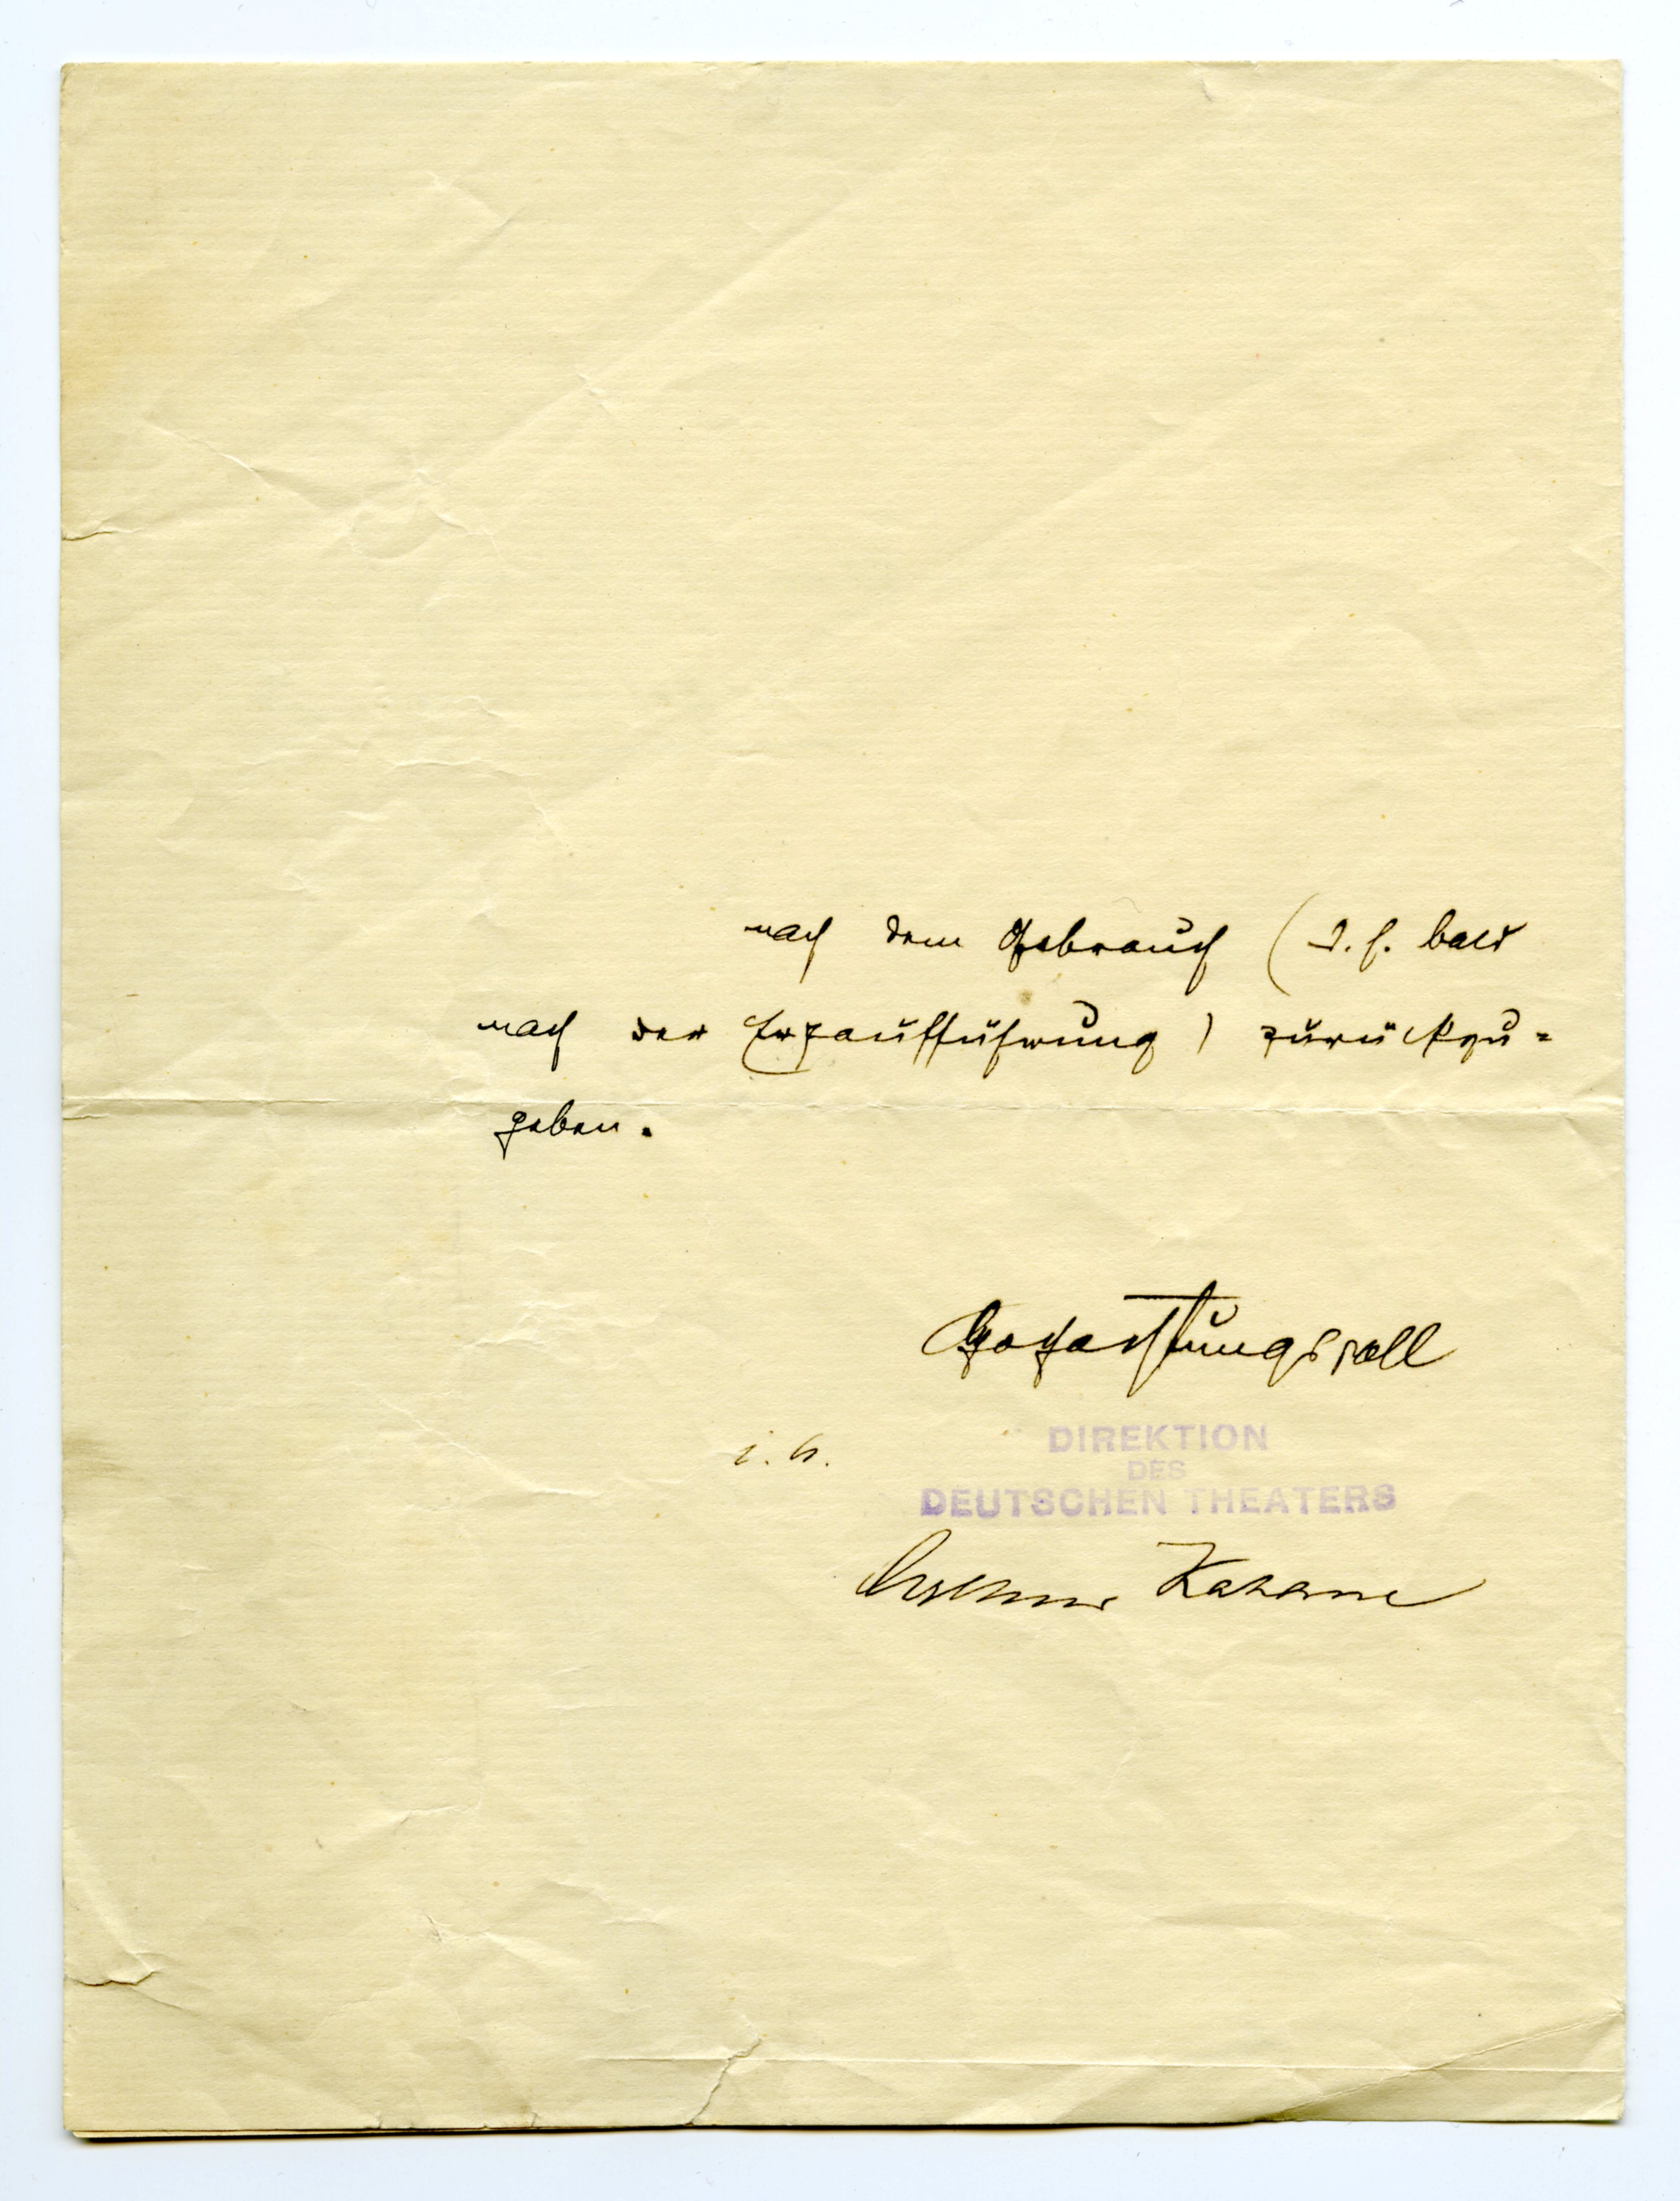 nach dem Gebrauch (d. h. bald
nach der Erstaufführung) zurückzu=
geben.
Hochachtungsvoll
DIREKTION
DES
DEUTSCHEN THEATERS
Arthur Kahane